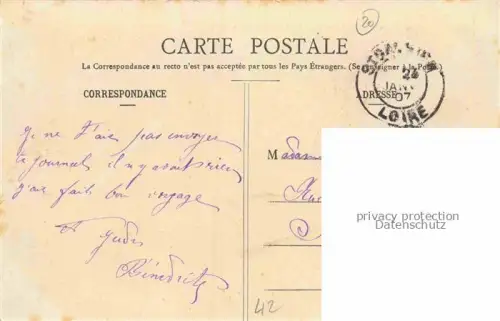 20
CARTE POSTALE
La Correspondance au recto n'est pas acceptée par tous les Pays Étrangers. (Se renseigner à la Poste)
CORRESPONDANCE
ADRESSE
24
JANV
07
LOIRE
je ne t'ai pas envoyer
le journal il n'y avait rien
j'ai fait bon voyage
A jeudi
Bénédicte
Madame
Rue
privacy protection
Datenschutz
42